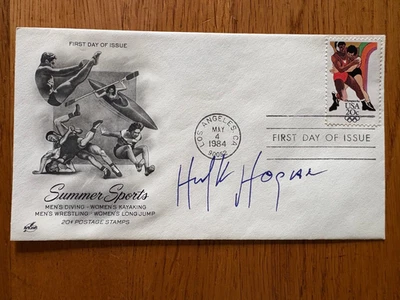 FIRST DAY OF ISSUE
Summer Sports
MEN'S DIVING · WOMEN'S KAYAKING
MEN'S WRESTLING · WOMEN'S LONG JUMP
20¢ POSTAGE STAMPS
LOS ANGELES, CA
MAY
4
1984
90052
USA
20c
FIRST DAY OF ISSUE
Hulk Hogan